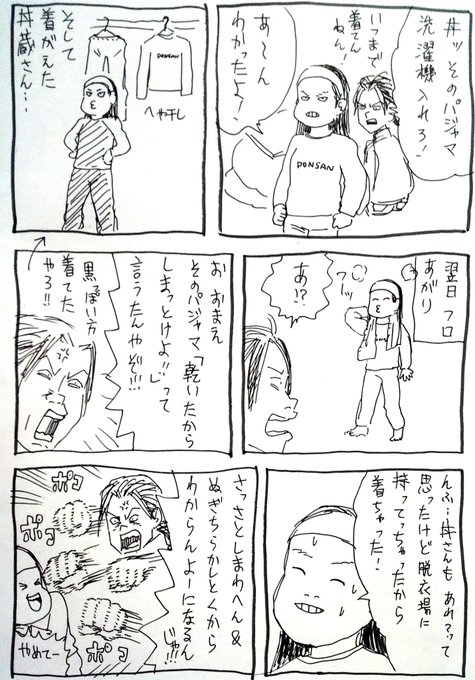 丼ッそのパジャマ
洗濯機入れろ!
いつまで
着てんねん!
あ〜ん
わかったよ!
DONSAN
DONSAN
へや干し
そして
着がえた
丼蔵さん…
翌日フロ
あがり
フーッ
あ!?
お おまえ
そのパジャマ「乾いたから
しまっとけよ!!」って
言うたんやぞ!!!
黒っぽい方
着てた
やろ!!
んふ…丼さんも あれ?って
思ったけど脱衣場に
持ってっちゃったから
着ちゃった!
さっさとしまわへん&
ぬぎちらかしとくから
わからんよーになるん
じゃ!!!
ポコ
ポコ
ポコ
やめてー